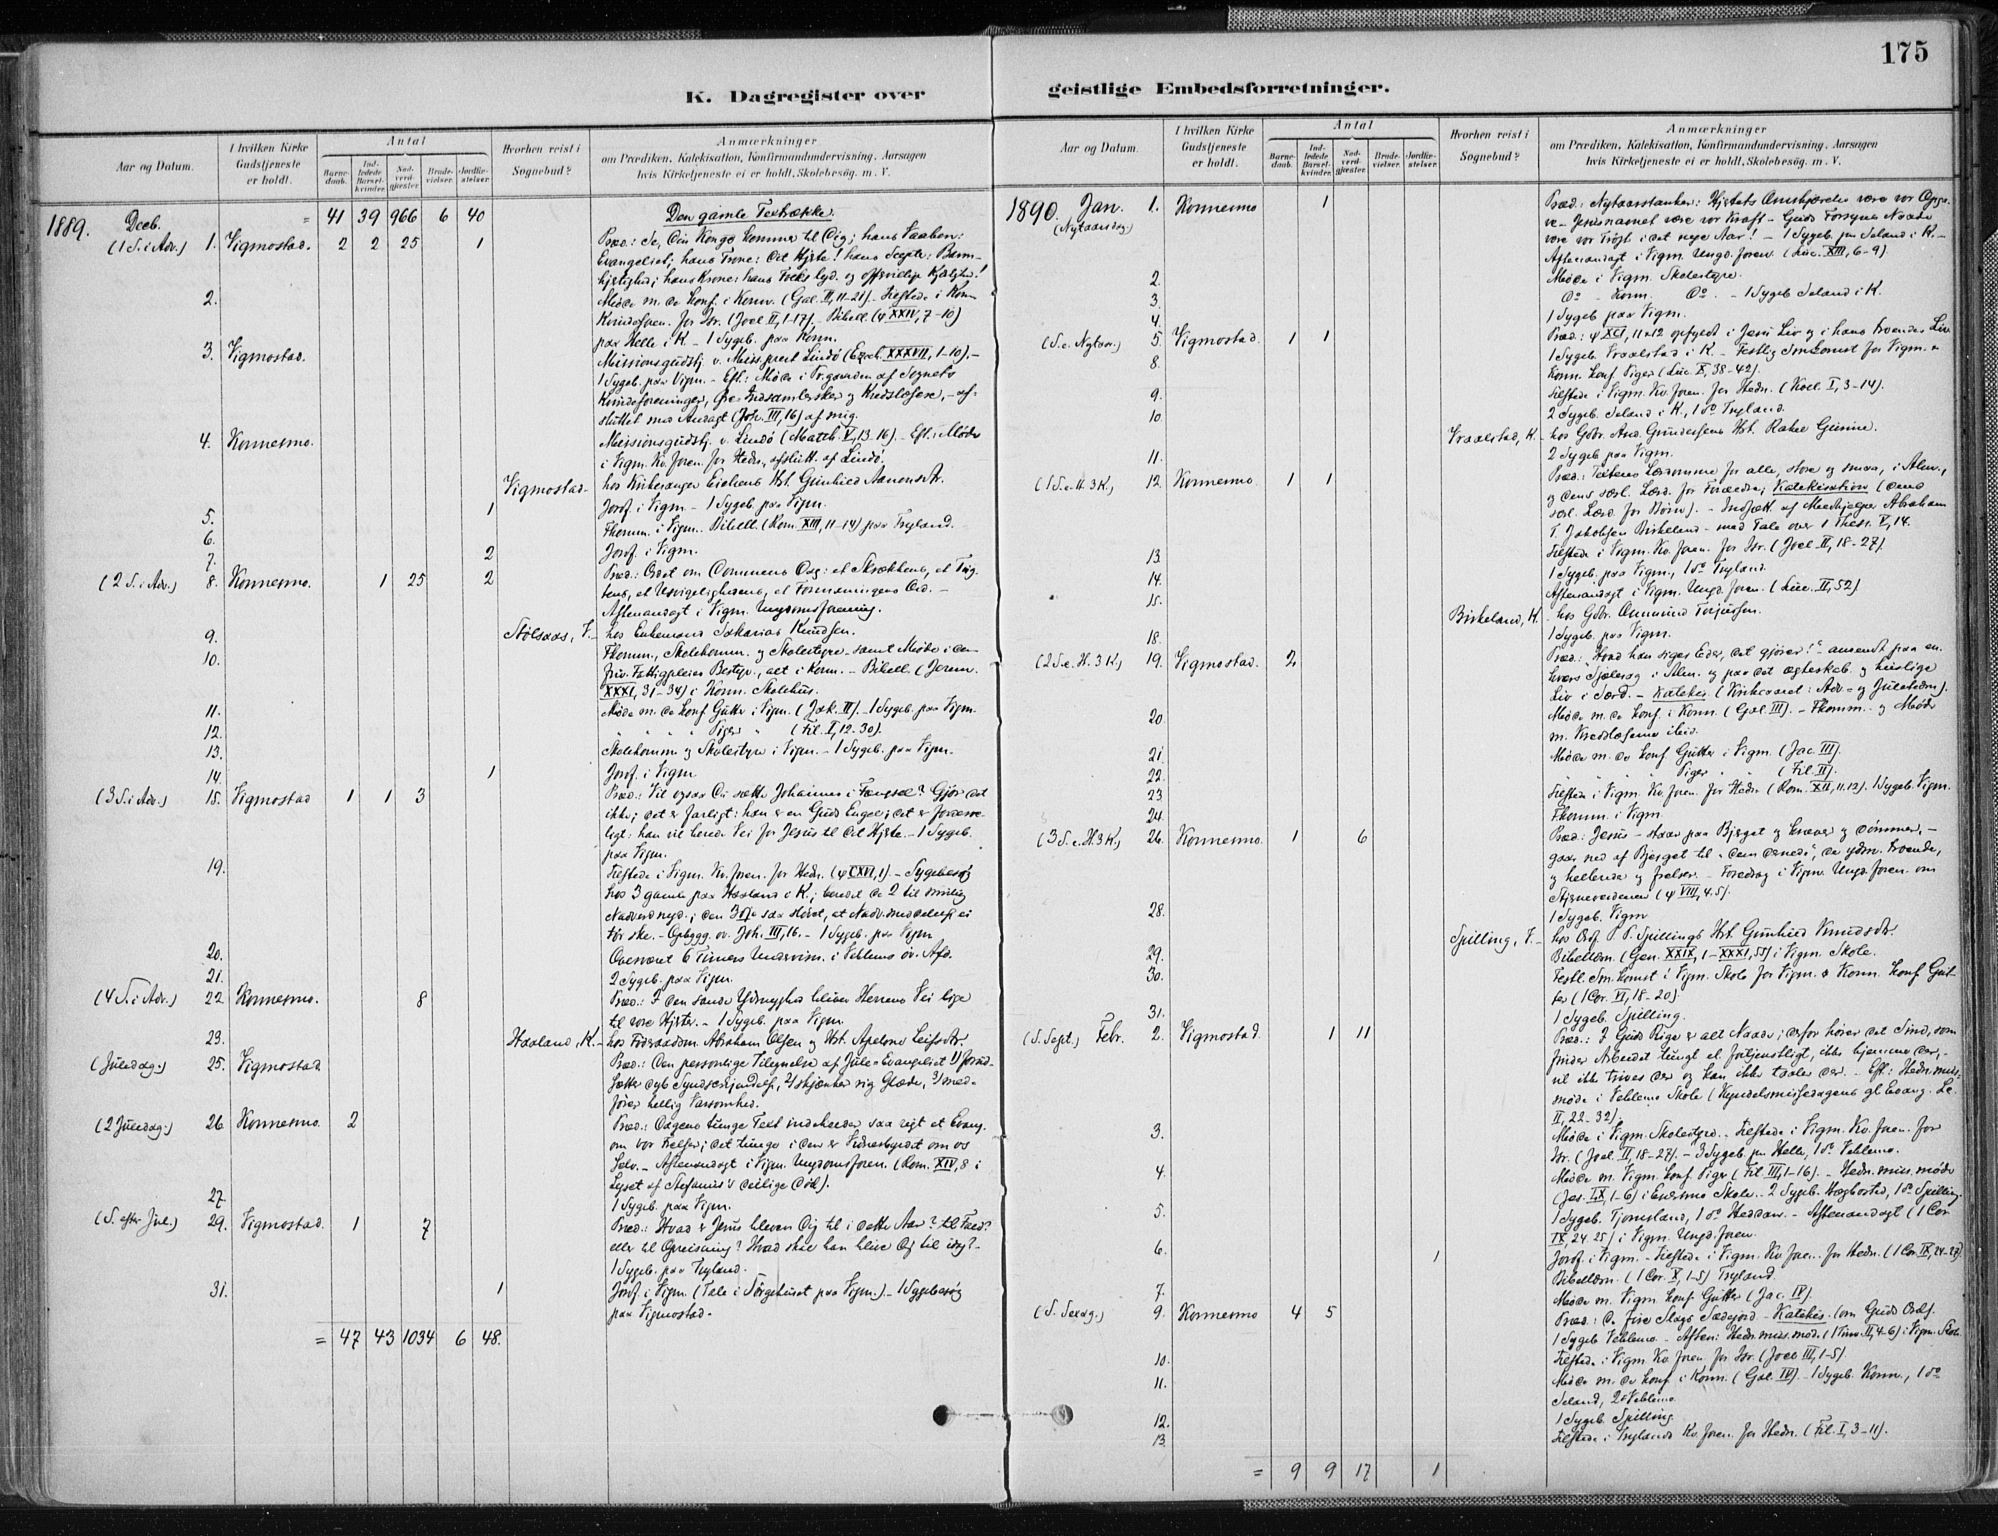 175
K. Dagregister over geistlige Embedsforretninger.
Aar og Datum.
I hvilken Kirke Gudstjeneste er holdt.
Antal
Barne-daab.
Ind-ledede Barsel-kvinder.
Nad-verd-gjæster
Brude-vielser
Jordfæ-stelser
Hvorhen reist i Sognebud?
Anmærkninger
om Prædiken, Katekisation, Konfirmandundervisning, Aarsagen
hvis Kirketjeneste ei er holdt, Skolebesøg. m. V.
1889. Decb. = 41 39 966 6 40 Den gamle Textrække.
(1 S. i Adv.) 1. Vigmostad. 2 2 25 1 Præd.: Se, Din Konge kommer til Dig; hans Vaaben:
Evangeliet; hans Trone: Dit Hjerte! hans Scepter: Barm-
hjertighed; hans Krone: hans Folks lyd. og offervillige Kjærlighed!
2. Møde m. de konf. i Konm. (Gal. II, 11-21). Tilstede i Konm.
Kvindeforen. for Isr. (Joel II, 1-17). Bibell. (ψ XXIV, 7-10)
paa Helle i K. - 1 Sygeb. paa Konm.
3. Vigmostad. Missionsgudstj. v. Miss.prest Lindö (Ezech. XXXVII, 1-10). -
1 Sygeb. paa Vigm. - Eft.: Møde i Pr.gaarden af Sognets
Kvindeforeninger, Øre-Indsamlersker og Kredslæsere, - af-
sluttet med Andagt (Joh. III, 16) af mig.
4. Konnesmo. Missionsgudstj. v. Lindö (Matth. V, 13-16). - Eft.: Møde
i Vigm. Kv. foren. for Hedn., afslutt. af Lindö.
Vigmostad. hos Kirkesanger Eickens Hst. Gunhild Aanonsdt.
5. 1 Jordf. i Vigm. - 1 Sygeb. paa Vigm.
6. Fkomm. i Vigm. Bibell. (Rom. XIII, 11-14) paa Tryland.
7. 2 Jordf. i Vigm.
(2 S. i Adv.) 8. Konnesmo. 1 25 2 Præd.: Ordet om Dommens Dag: et Skrækkens, et Trøs-
tens, et Usvigelighedens, et Formaningens Ord. -
Aftenandagt i Vigm. Ungdomsforening.
9. Stølsaas, V. - hos Enkemand Sakarias Knudsen.
10. Fkomm., Skolekomm. og Skolestyre - samt Møde i den
friv. Fattigpleies Bestyr., alt i Konm. - Bibell. (Jerem.
XXXI, 31-34) i Konm. Skolehus.
11. Møde m. de konf. Gutter i Vigm. (Jak. II). - 1 Sygeb. paa Vigm.
12. " " " " Piger " (Fil. I, 12-30).
13. Skolekomm. og Skolestyre i Vigm. - 1 Sygeb. paa Vigm.
14. 1 Jordf. i Vigm.
(3 S. i Adv.) 15. Vigmostad 1 1 3 Præd.: Vil ogsaa Du sætte Johannes i Fængsel? Gjør det
ikke; det er farligt: han er en Guds Engel; det er fordærve-
ligt: han vil berede Vei for Jesus til dit Hjerte. - 1 Sygeb.
paa Vigm.
19. Tilstede i Vigm. Kv. foren. for Hedn. (ψ CXVI, 1) - Sygebesøg
hos 3 gamle paa Haaland i K.; beredt de 2 til
Nadverdnyd.; den 3die saa sløvet, at Nadv. meddelelse ei
tør ske. - Opbygg. ov. Joh. III, 16. - 1 Sygeb. paa Vigm.
20. Overværet 6 Timers Undervisn. i Vehlemo øv. Afd.
21. 2 Sygeb. paa Vigm.
(4 S. i Adv.) 22. Konnesmo. 8 Præd.: I den sande Ydmyghed bliver Herrens Vei lige
til vore Hjerter. - 1 Sygeb. paa Vigm.
23. Haaland, K. - hos Abraham Olsen og Hst. Apelone Leifsdt.
(Juledag.) 25. Vigmostad Præd.: Den personlige Tilegnelse af Jule-Evangeliet 1) forud-
sætter dyb Syndserkjendelse, 2) skjænker rig Glæde, 3) med-
fører hellig Varsomhed.
(2 Juledag.) 26. Konnesmo. 2 Præd.: Dagens tunge Text indeholder saa rigt et Evang.
om vor Frelser; det tunge i den er Vidnesbyrdet om os
selv. - Aftenandagt i Vigm. Ungdomsforen. (Rom. XIV, 8 i
Lyset af Stefanus's deilige Død).
27. 1 Sygeb. paa Vigm.
(S. efter Jul.) 29. Vigmostad. 1 7 Præd.: Hvad er Jesus bleven Dig til i dette Aar? til Fald?
eller til Opreisning? Hvad skal han blive Dig til idag? -
1 Sygeb. paa Tryland.
31. 1 Jordf. i Vigm. (Tale i Sørgehuset paa Vigm.). - 1 Sygebesøg
paa Vigmostad.
= 47 43 1034 6 48.
Aar og Datum.
I hvilken Kirke Gudstjeneste er holdt.
Antal
Barne-daab.
Ind-ledede Barsel-kvinder.
Nad-verd-gjæster
Brude-vielser
Jordfæ-stelser
Hvorhen reist i Sognebud?
Anmærkninger
om Prædiken, Katekisation, Konfirmandundervisning, Aarsagen
hvis Kirketjeneste ei er holdt, Skolebesøg. m. V.
1890. Jan. 1. Konnesmo 1 Præd.: Nytaarstanker: Hjertets Omskjærelse være vor Opga-
(Nytaarsdag) ve - Jesusnavnet være vor Kraft - Guds Forsyns Naade
være vor Trøst i det nye Aar! - 1 Sygeb. paa Seland i K. -
Aftenandagt i Vigm. Ungd. foren. (Luc. XIII, 6-9).
2. Møde i Vigm. Skolestyre.
3. Do - Konm. Do. - 1 Sygeb. Seland i K.
4. 1 Sygeb. paa Vigm.
(S. e. Nytaar.) 5. Vigmostad. 1 1 Præd.: ψ XCI, 11 & 12 opfyldt i Jesu Liv og i hans Troendes Liv.
8. 1 Sygeb. Vraalstad i K. - Festlig Smkomst for Vigm. &
Konm. konf. Piger (Luc. X, 38-42).
9. Tilstede i Vigm. Kv. foren. for Hedn. (Koll. I, 3-14).
10. 2 Sygeb. Seland i K., 1 do Tryland.
Vraalstad, K. - hos Gbr. And. Gundersens Hst. Rakel
11. 2 Sygeb. paa Vigm.
(1 S. e. H. 3 K.) 12. Konnesmo. 1 1 Præd.: Textens Lærdomme for alle, store og smaa, i Alm.,
og dens særl. Lærd. for Forældre; Katekisation (dens
særl. Lærd. for Børn). - Indsætt. af Medhjelper Abraham
T. Jakobsen Birkeland - med Tale over 1 Thess. V, 14.
13. Tilstede i Vigm. Kv. foren. for Isr. (Joel II, 18-27).
14. 1 Sygeb. paa Vigm., 1 do Tryland.
15. Aftenandagt i Vigm. Ungd. foren. (Luc. II, 52)
Birkeland, K. hos Gbr. Ommund Torjussen.
18. 1 Sygeb. paa Vigm.
(2 S. e. H. 3 K.) 19. Vigmostad. 2 Præd.: "Hvad han siger Eder, det gjører!" - anvendt paa en-
hvers Sjælesag i Alm. og paa det ægteskab. og huslige
Liv i Særd. - Katekis. (Kirkeaaret: Adv.- og Juletiden).
20. Møde m. de konf. i Konm. (Gal. III). - Fkomm. og Møde
m. Kredslæserne ibid.
21. Møde m. de konf. Gutter i Vigm. (Jac. III).
22. " " " " Piger " " (Fil. II).
23. Tilstede i Vigm. Kv. foren. for Hedn. (Rom. XII, 11.12). 1 Sygeb. Vigm.
24. Fkomm. i Vigm.
(3 S. e. H. 3 K.) 26. Konnesmo. 1 6 Præd.: Jesus - staar paa Bjerget og kræver og dømmer, -
gaar ned af Bjerget til "dem dernede", de ydm. Troende,
og helbreder og frelser. - Foredrag i Vigm. Ungd. foren. om
Stjerneverdenen (ψ VIII, 4.5).
28. 1 Sygeb. Vigm.
Spilling, V. - hos P. P. Spillings Hst. Gunhild Knudsdt.
29. Bibellæsn. (Gen. XXIX, 1 - XXXI, 55) i Vigm. Skole.
30. Festl. Sm.komst i Vigm. Skole for Vigm. & Konm. konf. Gut-
ter (1 Cor. VI, 18-20).
31. 1 Sygeb. Spilling.
(S. Sept.) Febr. 2. Vigmostad. 1 11 Præd.: I Guds Rige er alt Naade; derfor hører det Sind, som
finder Arbeidet tungt el. fortjenstligt, ikke hjemme der, -
vil ikke trives der og kan ikke taales der. - Eft.: Hedn. miss.
møde i Vehlemo Skole (Kyndelsmissedagens gl. Evang. Lc.
II, 22-32).
3. Møde i Vigm. Skolestyre. - Tilstede i Vigm. Kv. foren. for
Isr. (Joel. II, 18-27). - 3 Sygeb. paa Helle, 1 do Vehlemo.
4. Møde m. Vigm. konf. Piger (Fil. III, 1-16). - Hedn. miss. møde
(Jes. LX, 1-6) i Skole. - 2 Sygeb. Hægbostad, 1 do Spilling.
5. 1 Sygeb. Tjomsland, 1 do - Aftenandagt (1 Cor.
IX, 24-25) i Vigm. Ungd. foren.
6. 1 Jordf. i Vigm. - Tilstede i Vigm. Kv. foren. for Hedn. (1 Cor. IX, 24-27)
Bibellæsn. (1 Cor. X, 1-5) Tryland.
7. Møde m. Vigm. konf. Gutter (Jac. IV).
(S. Sexag.) 9. Konnesmo 4 5 Præd.: De fire Slags Sædejord - Katekis. (om Guds Ord).
1 Sygeb. Vehlemo - Aften: Hedn. miss. mød. (1 Tim. II, 4-6) i Vigm. Skole.
10. Tilstede i Vigm. Kv. foren. for Isr. (Joel III, 1-5).
11. Møde m. de konf. i Konm. (Gal. IV). - 1 Sygeb. Konm., 1 do
Seland, 2 do Vehlemo.
12. 1 Sygeb. Spilling.
13. Tilstede i Trylands Kv. foren. for Hedn. (Fil. I, 3-11).
= 9 9 17 1